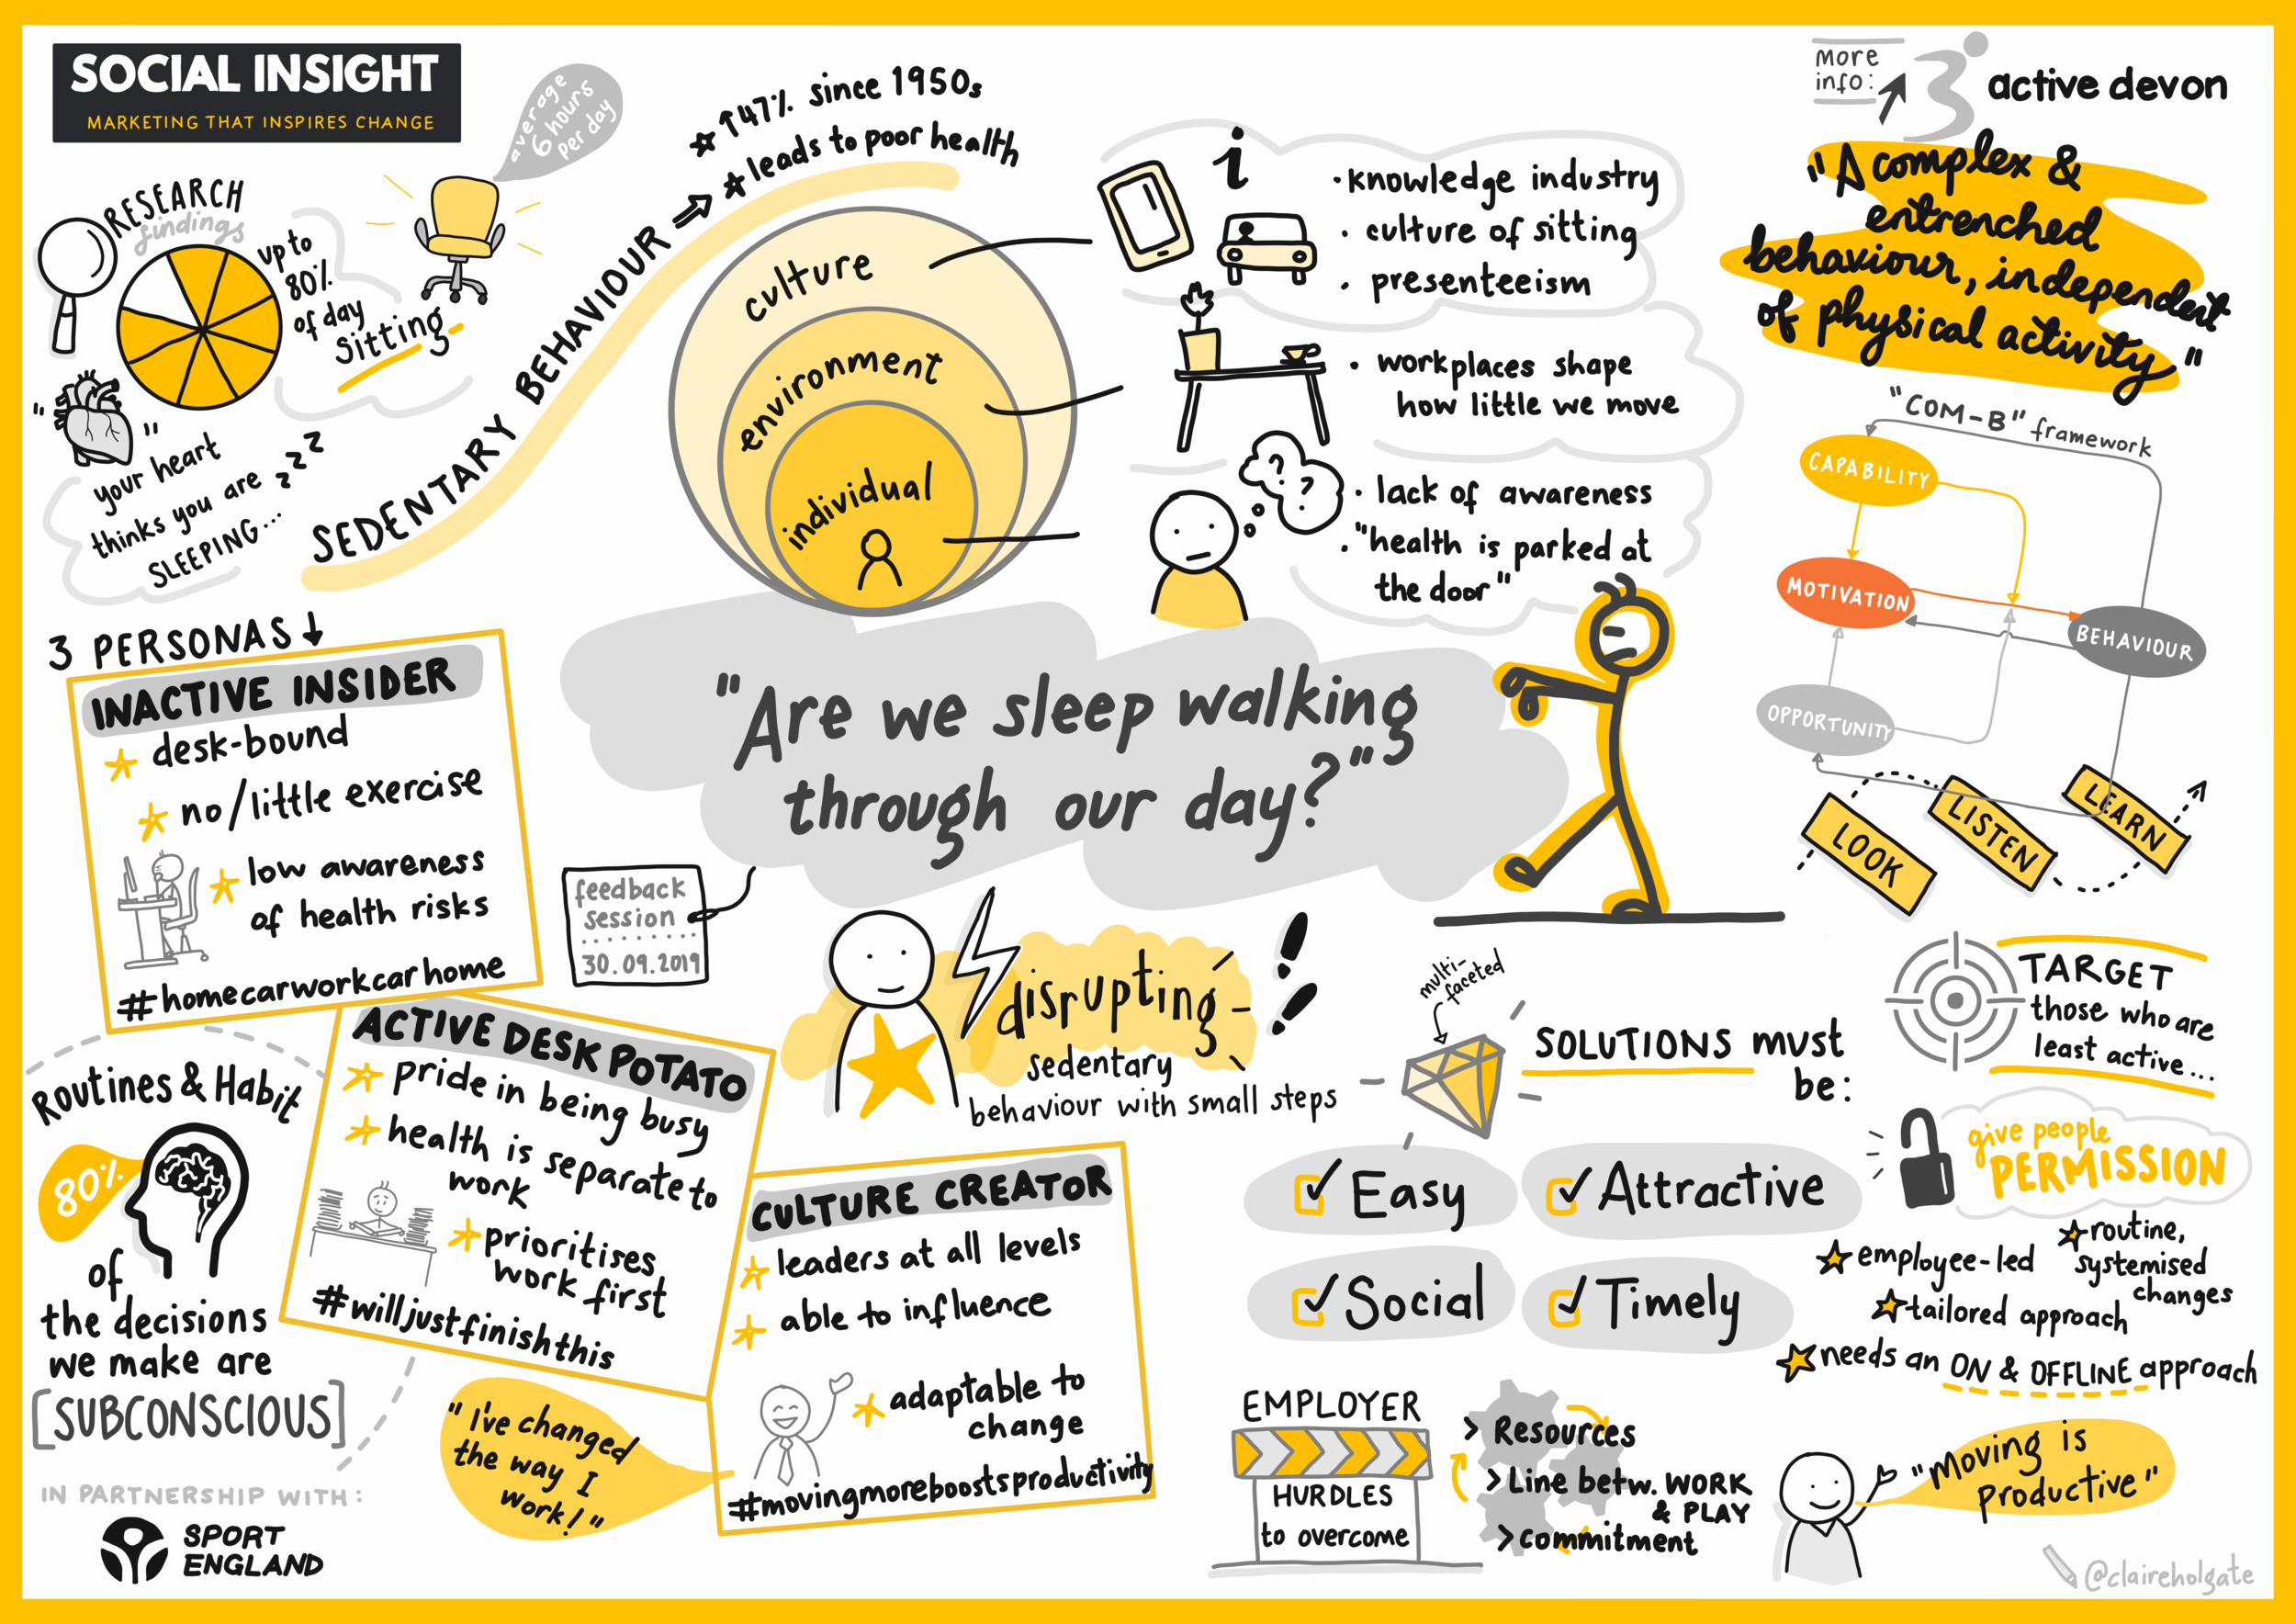 SOCIAL INSIGHT
MARKETING THAT INSPIRES CHANGE
average
6 hours
per day
RESEARCH
findings
up to
80%
of day
sitting
"
"
your heart
thinks you are zzz
SLEEPING...
SEDENTARY BEHAVIOUR
↑47% since 1950s
leads to poor health
culture
environment
individual
i
• knowledge industry
• culture of sitting
• presenteeism
• workplaces shape
how little we move
? ?
• lack of awareness
• "health is parked at
the door"
more
info:
active devon
"A complex &
entrenched
behaviour, independent
of physical activity"
"COM-B" framework
CAPABILITY
MOTIVATION
BEHAVIOUR
OPPORTUNITY
LOOK
LISTEN
LEARN
3 PERSONAS ↓
INACTIVE INSIDER
desk-bound
no/little exercise
low awareness
of health risks
#homecarworkcarhome
"Are we sleep walking
through our day?"
feedback
session
30.09.2019
disrupting
sedentary
behaviour with small steps
!!
multi-
faceted
SOLUTIONS must
be:
Easy
Attractive
Social
Timely
TARGET
those who are
least active...
give people
PERMISSION
employee-led
routine,
systemised
changes
tailored approach
needs an ON & OFFLINE approach
Routines & Habit
80%
of
the decisions
we make are
[SUBCONSCIOUS]
ACTIVE DESK POTATO
pride in being busy
health is separate to
work
prioritises
work first
#willjustfinishthis
CULTURE CREATOR
leaders at all levels
able to influence
adaptable to
change
#movingmoreboostsproductivity
"I've changed
the way I
work!"
EMPLOYER
HURDLES
to overcome
> Resources
> Line betw. WORK
& PLAY
> commitment
"Moving is
productive"
IN PARTNERSHIP WITH:
SPORT
ENGLAND
@claireholgate